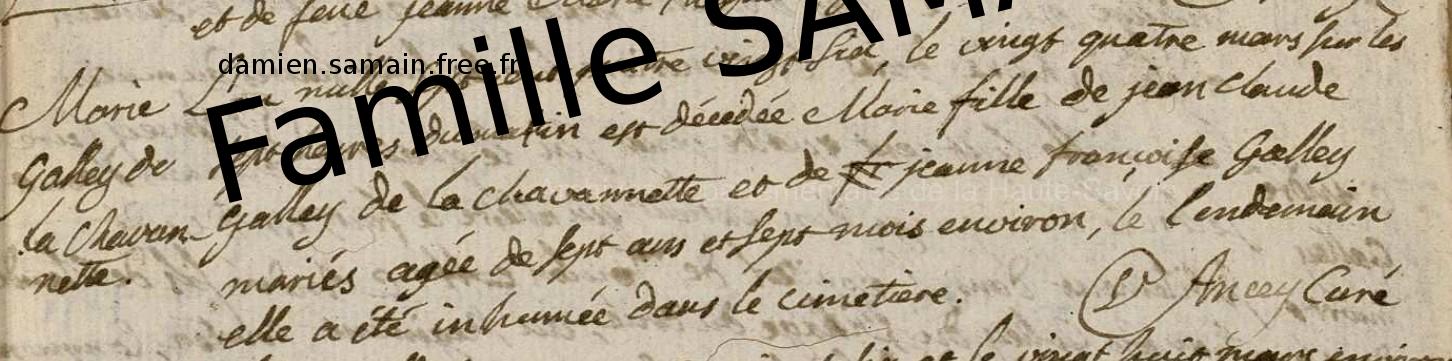 et de feue jeanne
damien.samain.free.fr
Famille SAMA
Marie
Galley de
la Chavan-
nette.
L'an mille sept cent quatre vingt six, le vingt quatre mars sur les
sept heures du matin est décédée Marie fille de jean claude
Galley de la chavannette et de jeanne françoise Galley
mariés agée de sept ans et sept mois environ, le lendemain
elle a été inhumée dans le cimetiere. Ancey Curé
et le vingt huit mars